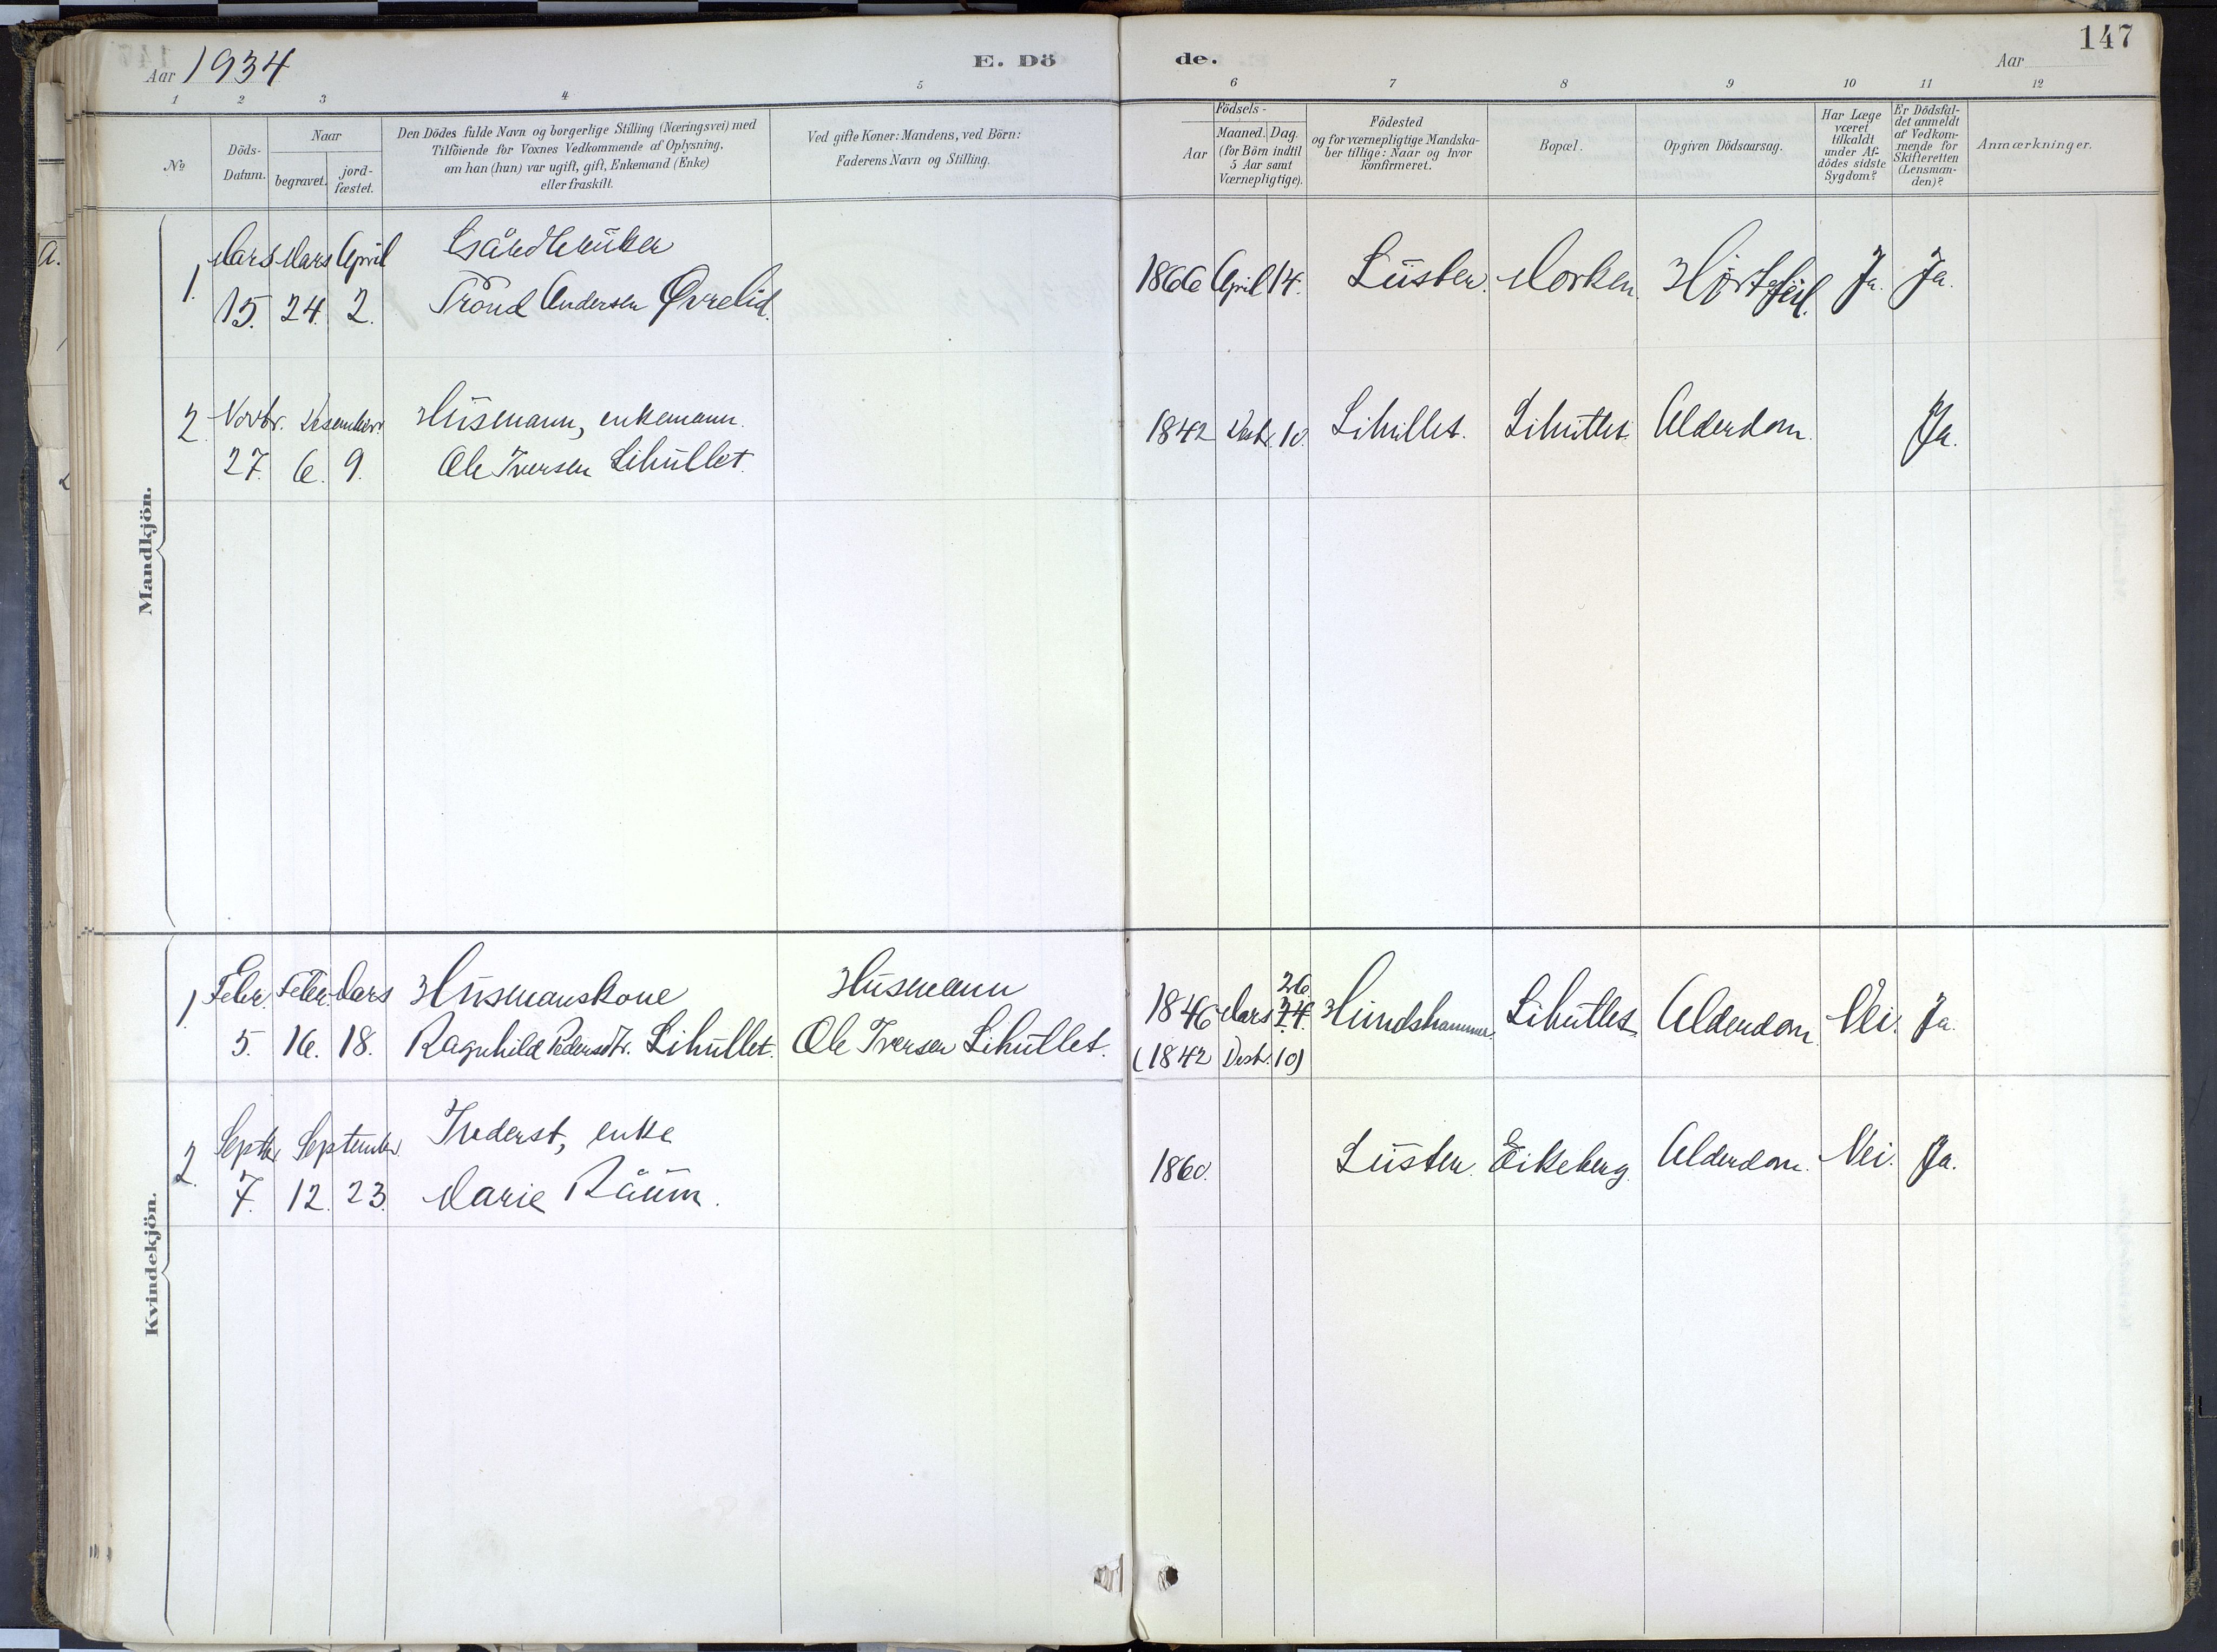 147
Aar 1934
E. Dö
de.
Aar
1 2 3 4 5 6 7 8 9 10 11 12
No
Döds-
Datum.
Naar
begravet.
jord-
fæstet.
Den Dödes fulde Navn og borgerlige Stilling (Næringsvei) med
Tilföiende for Voxnes Vedkommende af Oplysning,
om han (hun) var ugift, gift, Enkemand (Enke)
eller fraskilt.
Ved gifte Koner: Mandens, ved Börn:
Faderens Navn og Stilling.
Födsels-
Aar
Maaned. Dag.
(for Börn indtil
5 Aar samt
Værnepligtige).
Födested
og for værnepligtige Mandska-
ber tillige: Naar og hvor
konfirmeret.
Bopæl.
Opgiven Dödsaarsag.
Har Læge
været
tilkaldt
under Af-
dödes sidste
Sygdom?
Er Dödsfal-
det anmeldt
af Vedkom-
mende for
Skifteretten
(Lensman-
den)?
Anmærkninger.
Mandkjön.
Mars Mars April Gårdbruker
1. 15. 24. 2. Trond Andersen Øvrelid.
1866 April 14. Luster. Morken. Hjertefeil. Ja. Ja.
2. Novbr. Desember. Husmann, enkemann.
27. 6. 9. Ole Iversen Lihullet.
1842 Desbr. 10. Lihullet. Lihullet. Alderdom. Ja.
Kvindekjön.
1. Febr. Febr. Mars Husmanskone Husmann
5. 16. 18. Ragnhild Pedersdtr. Lihullet. Ole Iversen Lihullet.
26.
1846 Mars 24. Hundshammer. Lihullet. Alderdom. Nei. Ja.
(1842 Desbr. 10)
2. Septbr. September. Inderst, enke
7. 12. 23. Marie Råum.
1860. Luster. Eikeberg. Alderdom. Nei. Ja.